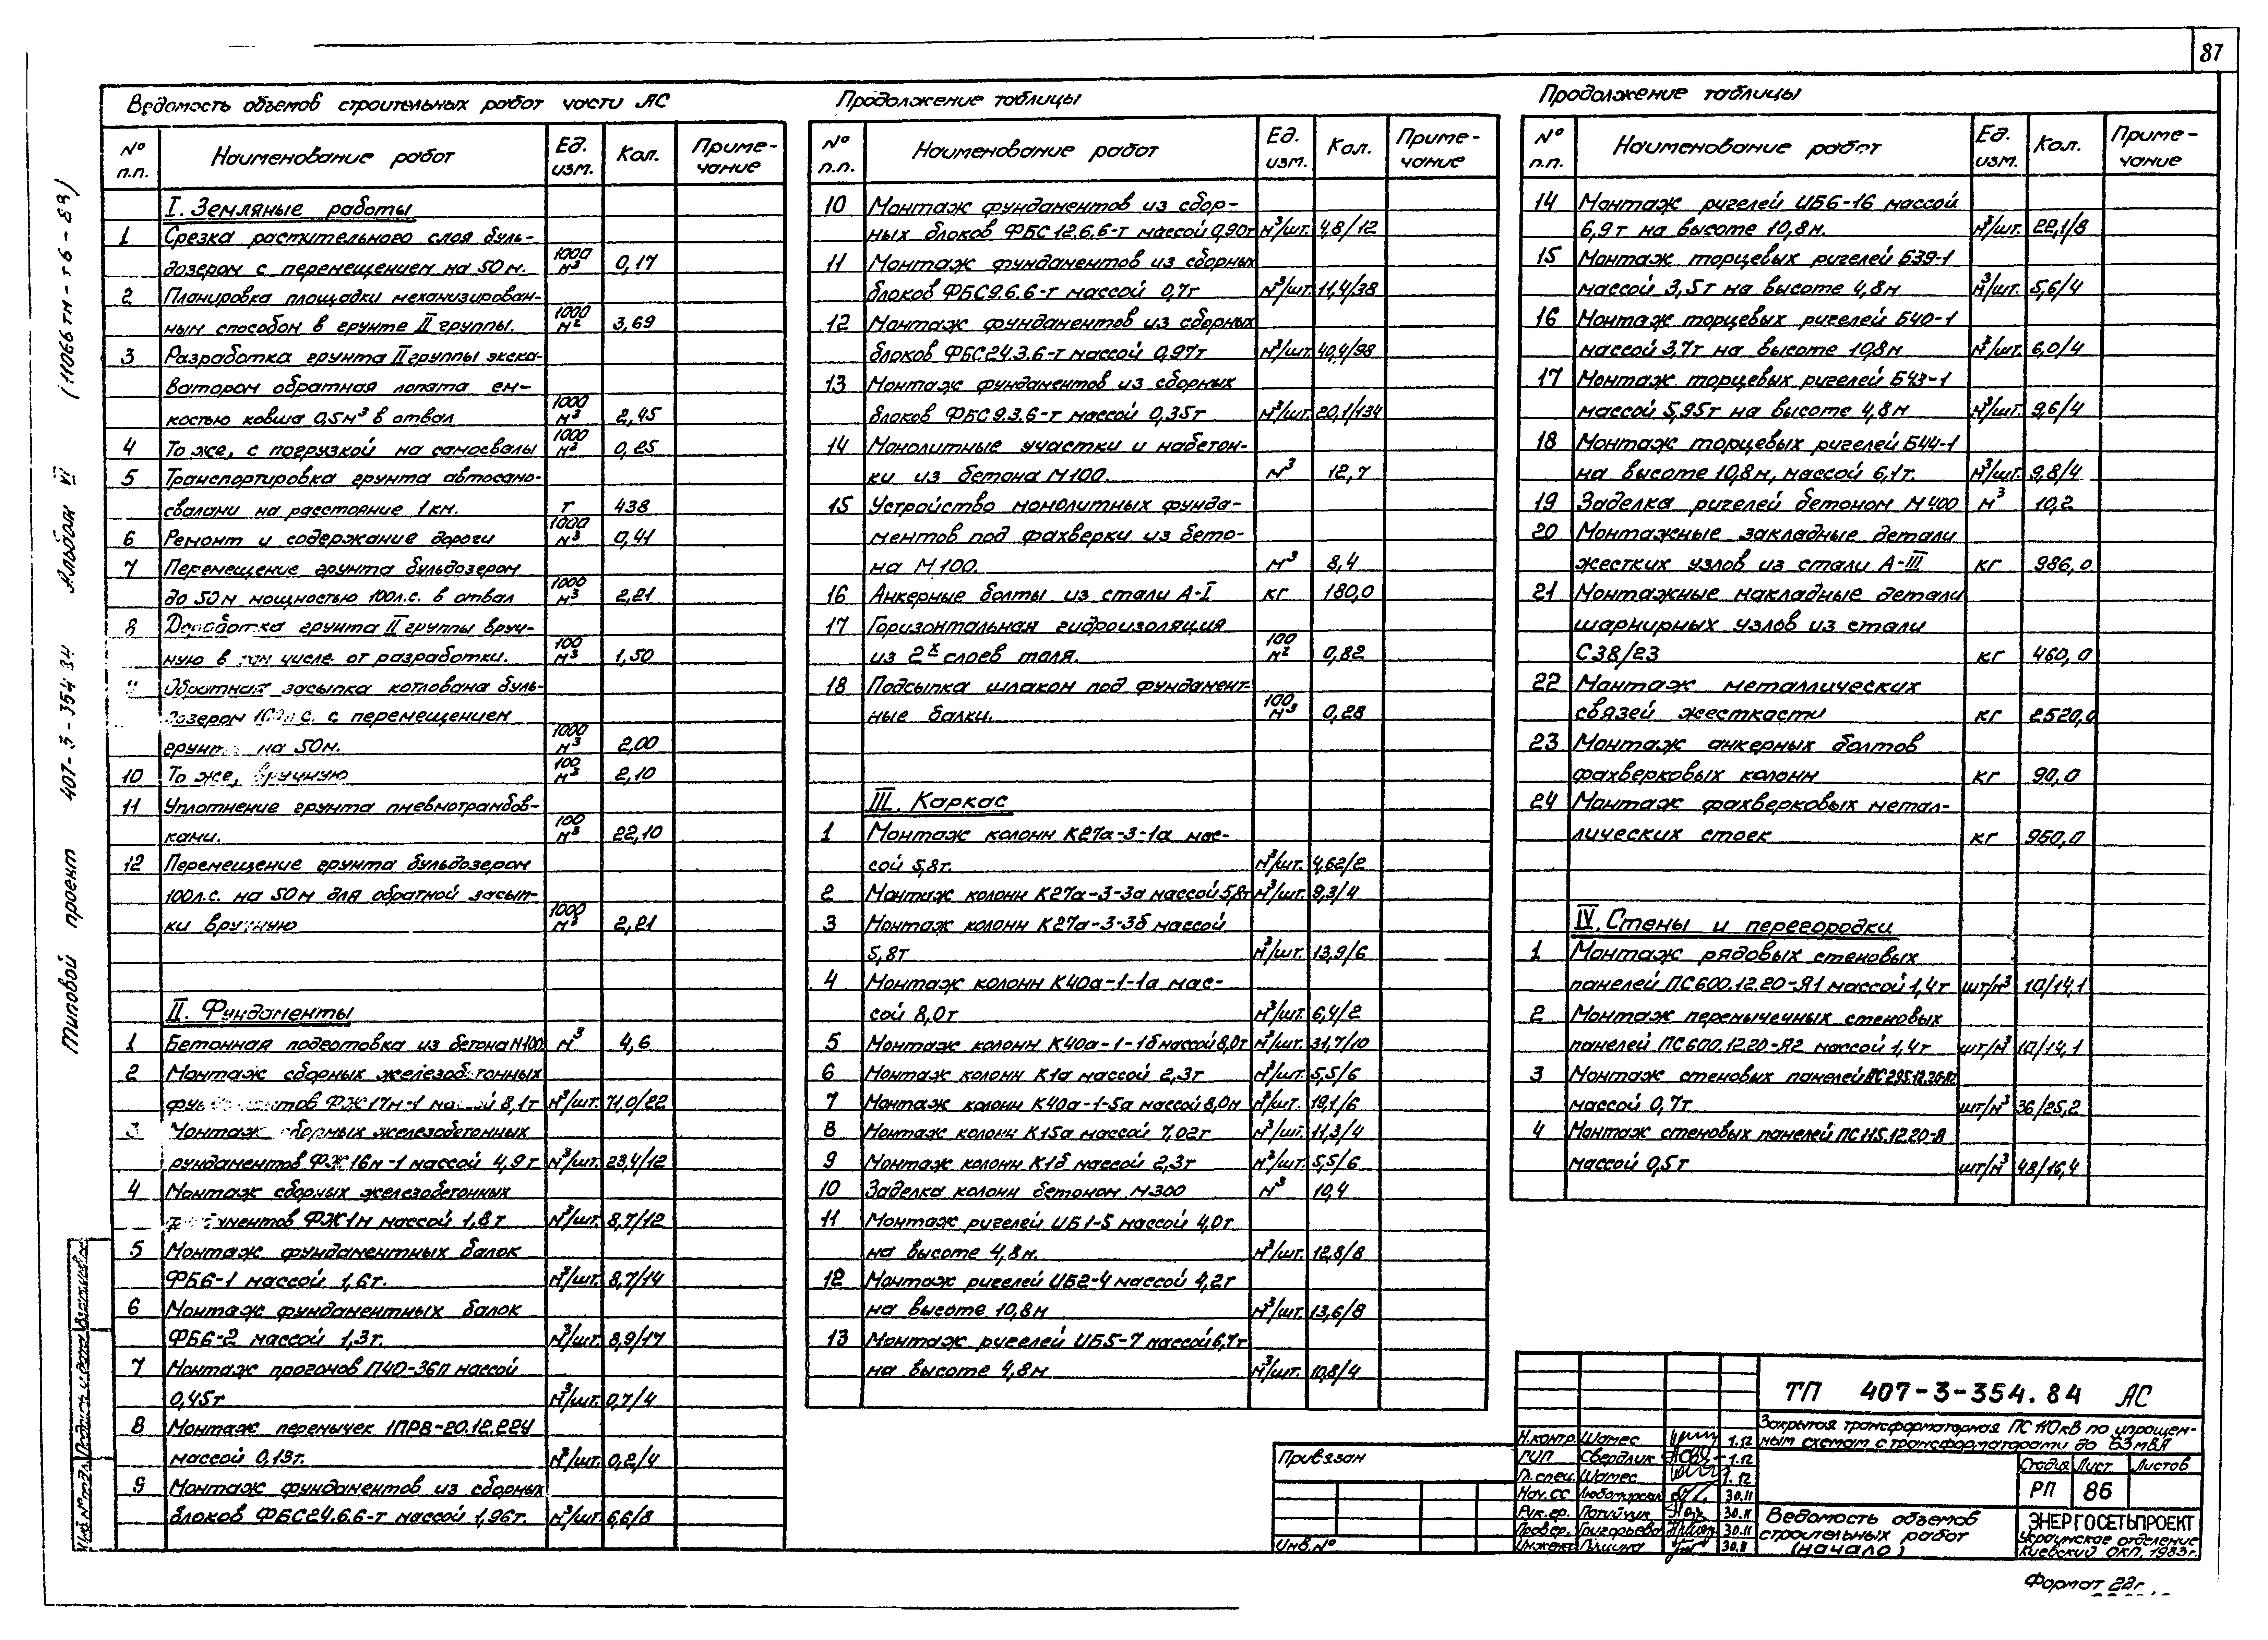 87
Ведомость объемов строительных работ части АС
№ п.п. Наименование работ Ед. изм. Кол. Приме-чание
I. Земляные работы
1 Срезка растительного слоя буль-
дозером с перемещением на 50 м. 1000 м³ 0,17
2 Планировка площадки механизирован-
ным способом в грунте II группы. 1000 м² 3,69
3 Разработка грунта II группы экска-
ватором обратная лопата ем-
костью ковша 0,5 м³ в отвал 1000 м³ 2,45
4 То же, с погрузкой на самосвалы 1000 м³ 0,25
5 Транспортировка грунта автосамо-
свалами на расстояние 1 км. т 438
6 Ремонт и содержание дороги 1000 м³ 0,41
7 Перемещение грунта бульдозером
до 50 м мощностью 100 л.с. в отвал 1000 м³ 2,21
8 Доработка грунта II группы вруч-
ную в том числе от разработки. 100 м³ 1,50
9 Обратная засыпка котлована буль-
дозером 100 л.с. с перемещением
грунта на 50 м. 1000 м³ 2,00
10 То же, вручную 100 м³ 2,10
11 Уплотнение грунта пневмотрамбов-
ками. 100 м³ 22,10
12 Перемещение грунта бульдозером
100 л.с. на 50 м для обратной засып-
ки вручную 1000 м³ 2,21
II. Фундаменты
1 Бетонная подготовка из бетона М100 м³ 4,6
2 Монтаж сборных железобетонных
фундаментов ФЖ17м-1 массой 8,1т м³/шт. 71,0/22
3 Монтаж сборных железобетонных
фундаментов ФЖ16м-1 массой 4,9т м³/шт. 23,4/12
4 Монтаж сборных железобетонных
фундаментов ФЖ1м массой 1,8т м³/шт. 8,7/12
5 Монтаж фундаментных балок
ФБ6-1 массой 1,6т. м³/шт. 8,7/14
6 Монтаж фундаментных балок
ФБ6-2 массой 1,3т. м³/шт. 8,9/17
7 Монтаж прогонов П40-36п массой
0,45т м³/шт. 0,7/4
8 Монтаж перемычек 1ПР8-20.12.22у
массой 0,13т. м³/шт. 0,2/4
9 Монтаж фундаментов из сборных
блоков ФБС24.6.6-т массой 1,96т. м³/шт. 6,6/8
Продолжение таблицы
№ п.п. Наименование работ Ед. изм. Кол. Приме-чание
10 Монтаж фундаментов из сбор-
ных блоков ФБС 12.6.6-т массой 0,90т м³/шт. 4,8/12
11 Монтаж фундаментов из сборных
блоков ФБС9.6.6-т массой 0,7т м³/шт. 11,4/38
12 Монтаж фундаментов из сборных
блоков ФБС24.3.6-т массой 0,97т м³/шт. 40,4/98
13 Монтаж фундаментов из сборных
блоков ФБС9.3.6-т массой 0,35т м³/шт. 20,1/134
14 Монолитные участки и набетон-
ки из бетона М100. м³ 12,7
15 Устройство монолитных фунда-
ментов под фахверки из бето-
на М100. м³ 8,4
16 Анкерные болты из стали А-I кг 180,0
17 Горизонтальная гидроизоляция
из 2х слоев толя. 100 м² 0,82
18 Подсыпка шлаком под фундамент-
ные балки. 100 м³ 0,28
III. Каркас
1 Монтаж колонн К27а-3-1а мас-
сой 5,8т. м³/шт. 4,62/2
2 Монтаж колонн К27а-3-3а массой 5,8т м³/шт. 9,3/4
3 Монтаж колонн К27а-3-3б массой
5,8т м³/шт. 13,9/6
4 Монтаж колонн К40а-1-1а мас-
сой 8,0т м³/шт. 6,4/2
5 Монтаж колонн К40а-1-1б массой 8,0т м³/шт. 31,7/10
6 Монтаж колонн К1а массой 2,3т м³/шт. 5,5/6
7 Монтаж колонн К40а-1-5а массой 8,0м м³/шт. 19,1/6
8 Монтаж колонн К15а массой 7,02т м³/шт. 11,3/4
9 Монтаж колонн К1б массой 2,3т м³/шт. 5,5/6
10 Заделка колонн бетоном М300 м³ 10,4
11 Монтаж ригелей ИБ1-5 массой 4,0т
на высоте 4,8м. м³/шт. 12,8/8
12 Монтаж ригелей ИБ2-4 массой 4,2т
на высоте 10,8м м³/шт. 13,6/8
13 Монтаж ригелей ИБ5-7 массой 6,7т
на высоте 4,8м м³/шт. 10,8/4
Продолжение таблицы
№ п.п. Наименование работ Ед. изм. Кол. Приме-чание
14 Монтаж ригелей ИБ6-16 массой
6,9т на высоте 10,8м. м³/шт. 22,1/8
15 Монтаж торцевых ригелей Б39-1
массой 3,5т на высоте 4,8м м³/шт. 5,6/4
16 Монтаж торцевых ригелей Б40-1
массой 3,7т на высоте 10,8м м³/шт. 6,0/4
17 Монтаж торцевых ригелей Б43-1
массой 5,95т на высоте 4,8м м³/шт. 9,6/4
18 Монтаж торцевых ригелей Б44-1
на высоте 10,8м, массой 6,1т. м³/шт. 9,8/4
19 Заделка ригелей бетоном М400 м³ 10,2
20 Монтажные закладные детали
жестких узлов из стали А-III кг 986,0
21 Монтажные накладные детали
шарнирных узлов из стали
С38/23 кг 460,0
22 Монтаж металлических
связей жесткости кг 2520,0
23 Монтаж анкерных болтов
фахверковых колонн кг 90,0
24 Монтаж фахверковых метал-
лических стоек кг 950,0
IV. Стены и перегородки
1 Монтаж рядовых стеновых
панелей ПС600.12.20-Я1 массой 1,4т шт/м³ 10/14,1
2 Монтаж перемычечных стеновых
панелей ПС600.12.20-Я2 массой 1,4т шт/м³ 10/14,1
3 Монтаж стеновых панелей
массой 0,7т шт/м³ 36/25,2
4 Монтаж стеновых панелей ПС115.12.20-Я
массой 0,5т шт/м³ 48/16,4
Типовой проект 407-3-354 34 Альбом VI (11066тм-т6-89)
Привязан
Инв.№
ТП 407-3-354.84 АС
Закрытая трансформаторная ПС 110кВ по упрощен-
ным схемам с трансформаторами до 63мВА
Н.контр. Шамес 1.12
ГИП Свердлик 1.12
Гл.спец. Шамес 1.12
Нач.СС 30.11
Рук.гр. 30.11
Провер. Григорьева 30.11
30.11
Стадия Лист Листов
РП 86
Ведомость объемов
строительных работ
(начало)
ЭНЕРГОСЕТЬПРОЕКТ
Украинское отделение
Киевский ОКП, 1983г.
Формат 22г